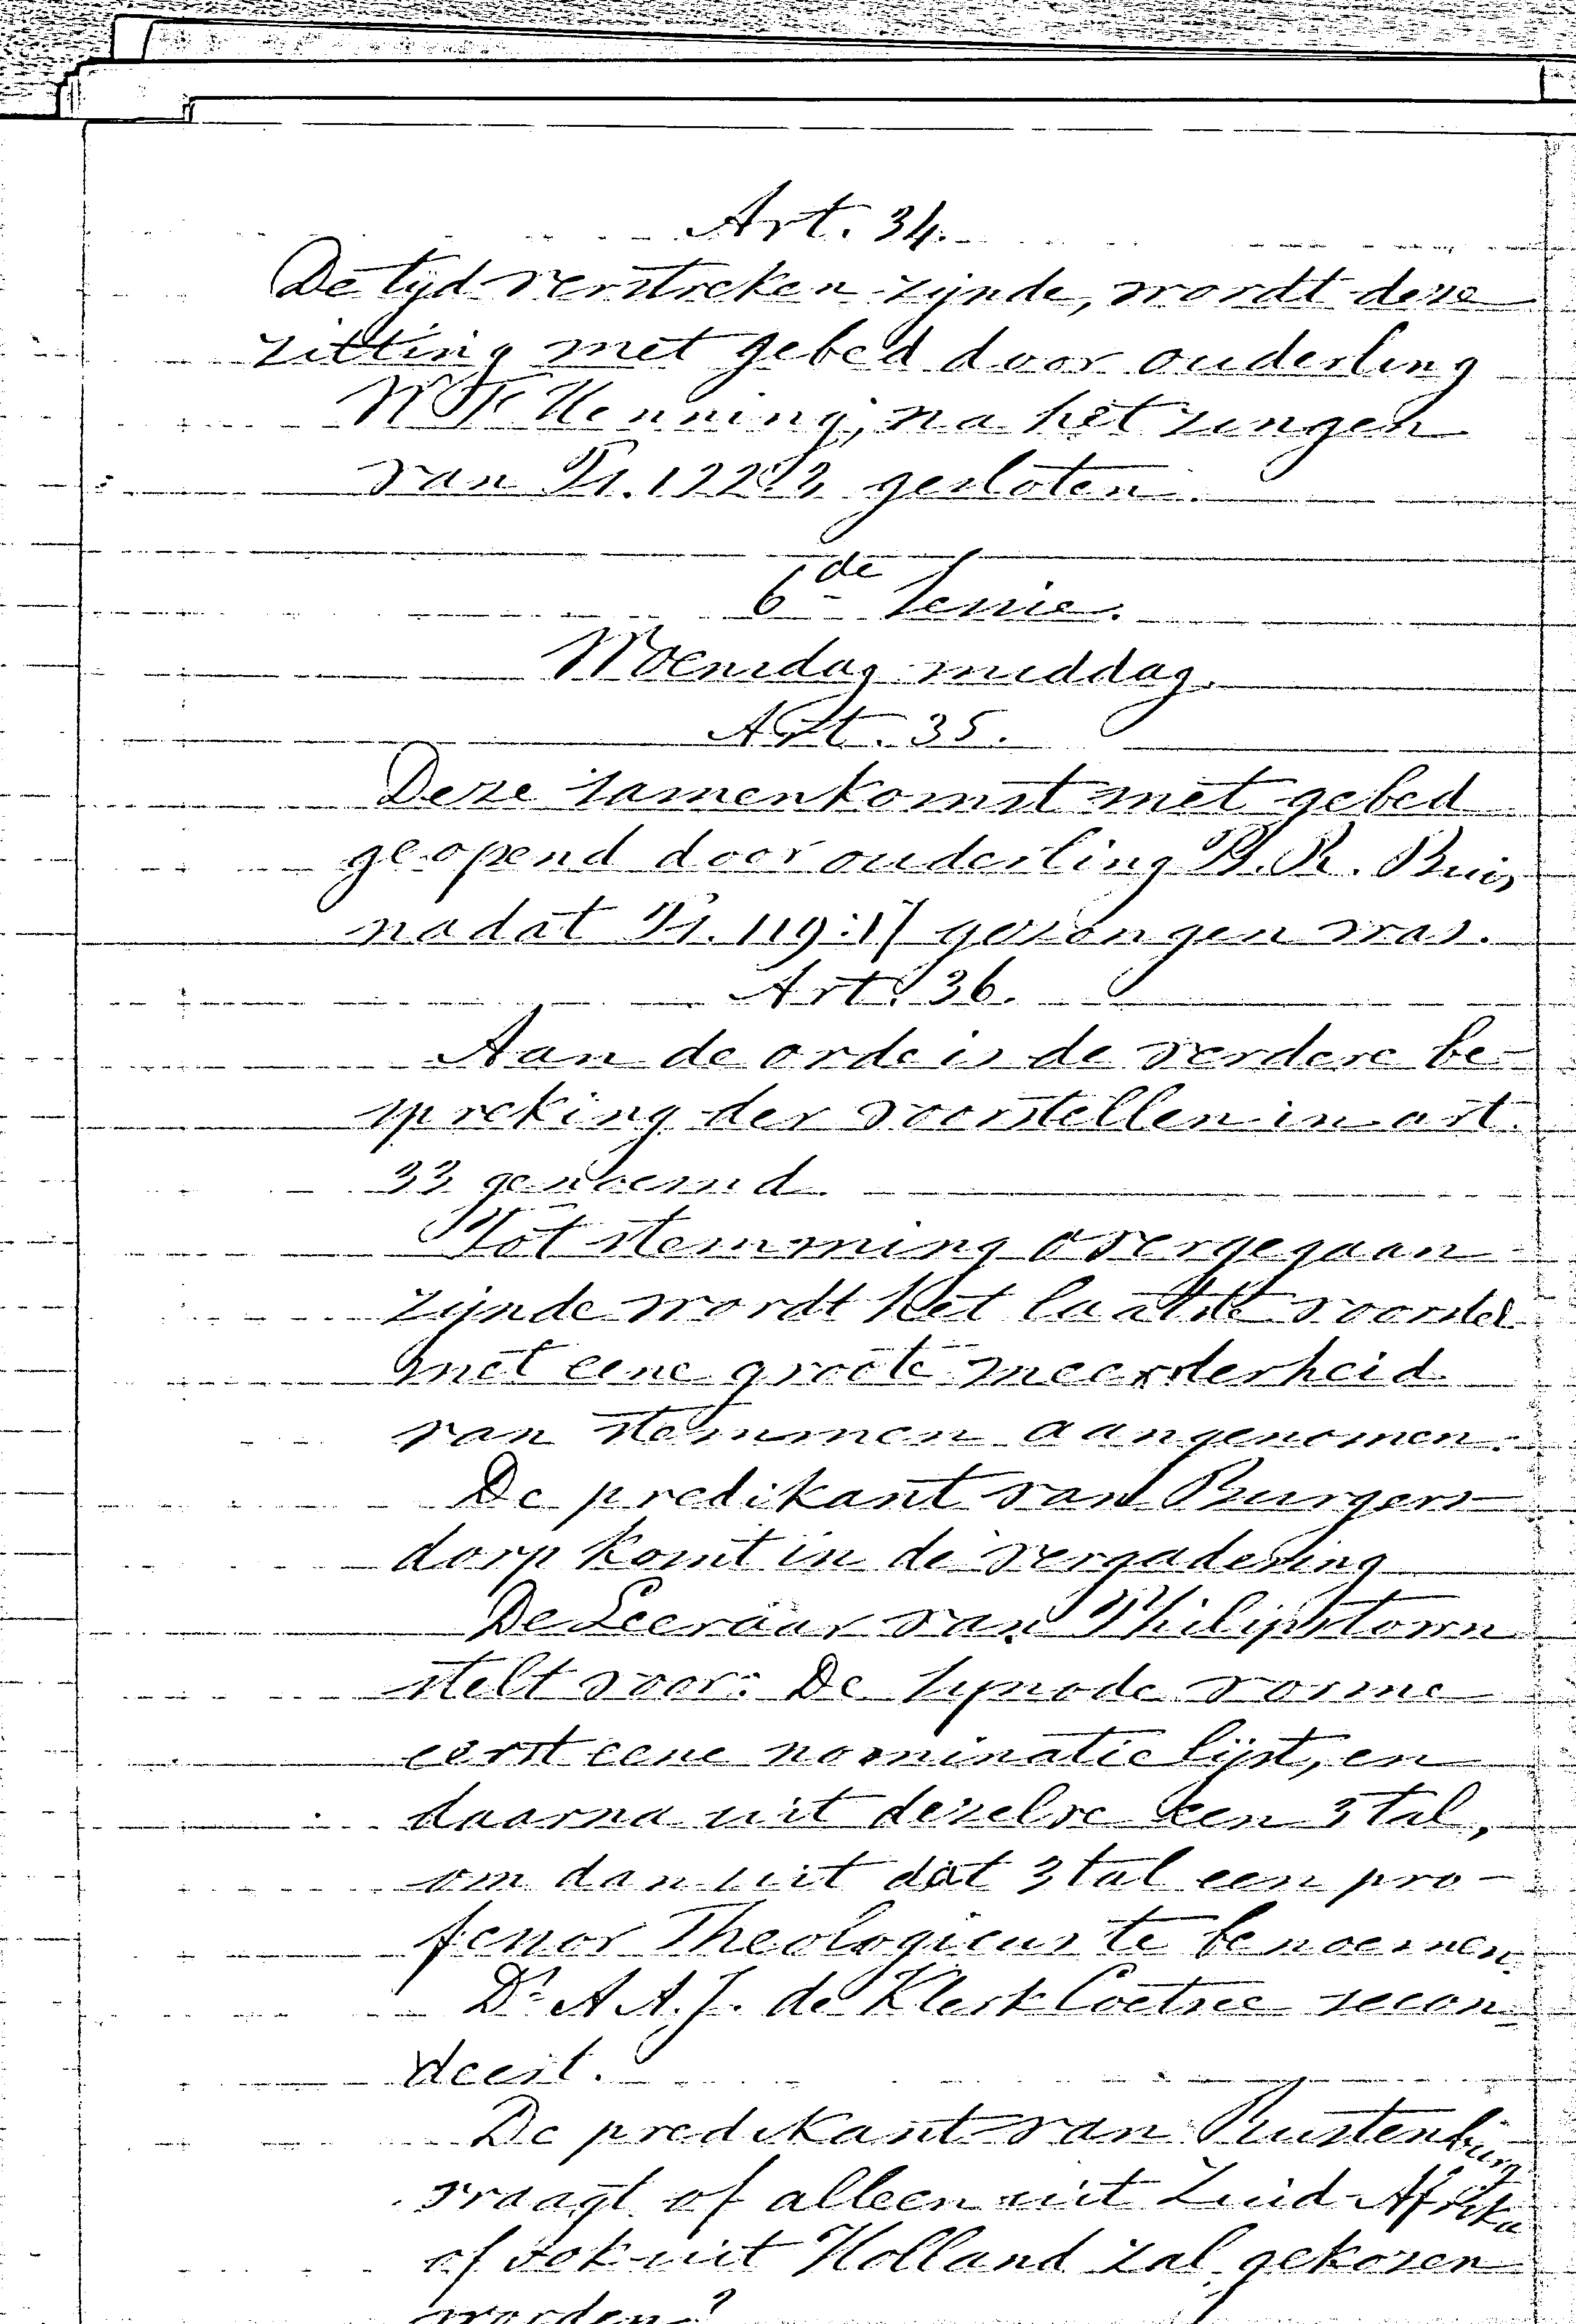 Art. 34.
De tijd verstreken zijnde, wordt deze
zitting met gebed door ouderling
Henning, na het zingen
van Ps. gesloten.
6de Sessie.
Woensdag middag.
Art. 35.
Deze samenkomst met gebed
geopend door ouderling P. R. Buis,
nadat Ps. 119: gezongen was.
Art. 36.
Aan de orde is de verdere be-
spreking der voorstellen in art.
33 genoemd.
Tot stemming overgegaan
zijnde wordt het laatste voorstel
met eene groote meerderheid
van stemmen aangenomen.
De predikant van Burgers-
dorp komt in de vergadering
De Leeraar van Philipstown
stelt voor: De Synode vorme
eerst eene nominatie lijst, en
daarna uit dezelve een 3tal,
om dan uit dat 3tal een pro-
fessor Theologicus te benoemen.
Ds. A A. J. de Klerk Coetsee secon-
deert.
De predikant van Rustenburg
vraagt of alleen uit Zuid-Afrika
of ook uit Holland zal gekozen
worden?